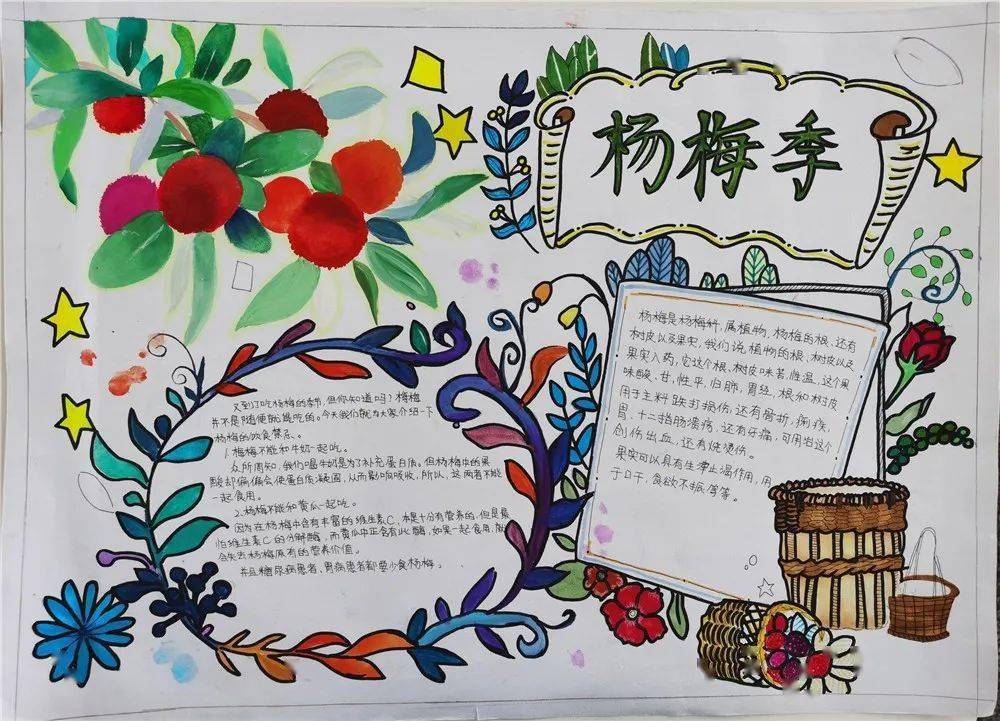 杨梅季
又到了吃杨梅的季节,但你知道吗?杨梅
并不是随便就能吃的。今天我们就为大家介绍一下
杨梅的饮食禁忌。
1.杨梅不能和牛奶一起吃。
众所周知,我们喝牛奶是为了补充蛋白质。但杨梅中的果
酸却偏偏会使蛋白质凝固,从而影响吸收,所以,这两者不能
一起食用。
2.杨梅不能和黄瓜一起吃。
因为在杨梅中含有丰富的维生素C,本是十分有营养的,但是最
怕维生素C的分解酶,而黄瓜中正含有此酶,如果一起食用,就
会失去杨梅原有的营养价值。
并且糖尿病患者、胃病患者都要少食杨梅。
杨梅是杨梅科,属植物,杨梅的根,还有
树皮以及果实,我们说植物的根、树皮以及
果实入药,它这个根、树皮味苦,性温,这个果
味酸、甘,性平,归肺,胃经,根和树皮
用于主料跌打损伤,还有骨折,痢疾,
胃、十二指肠溃疡,还有牙痛,可用治这个
创伤出血,还有烧烫伤。
果实可以具有生津止渴作用,用
于口干,食欲不振等等。